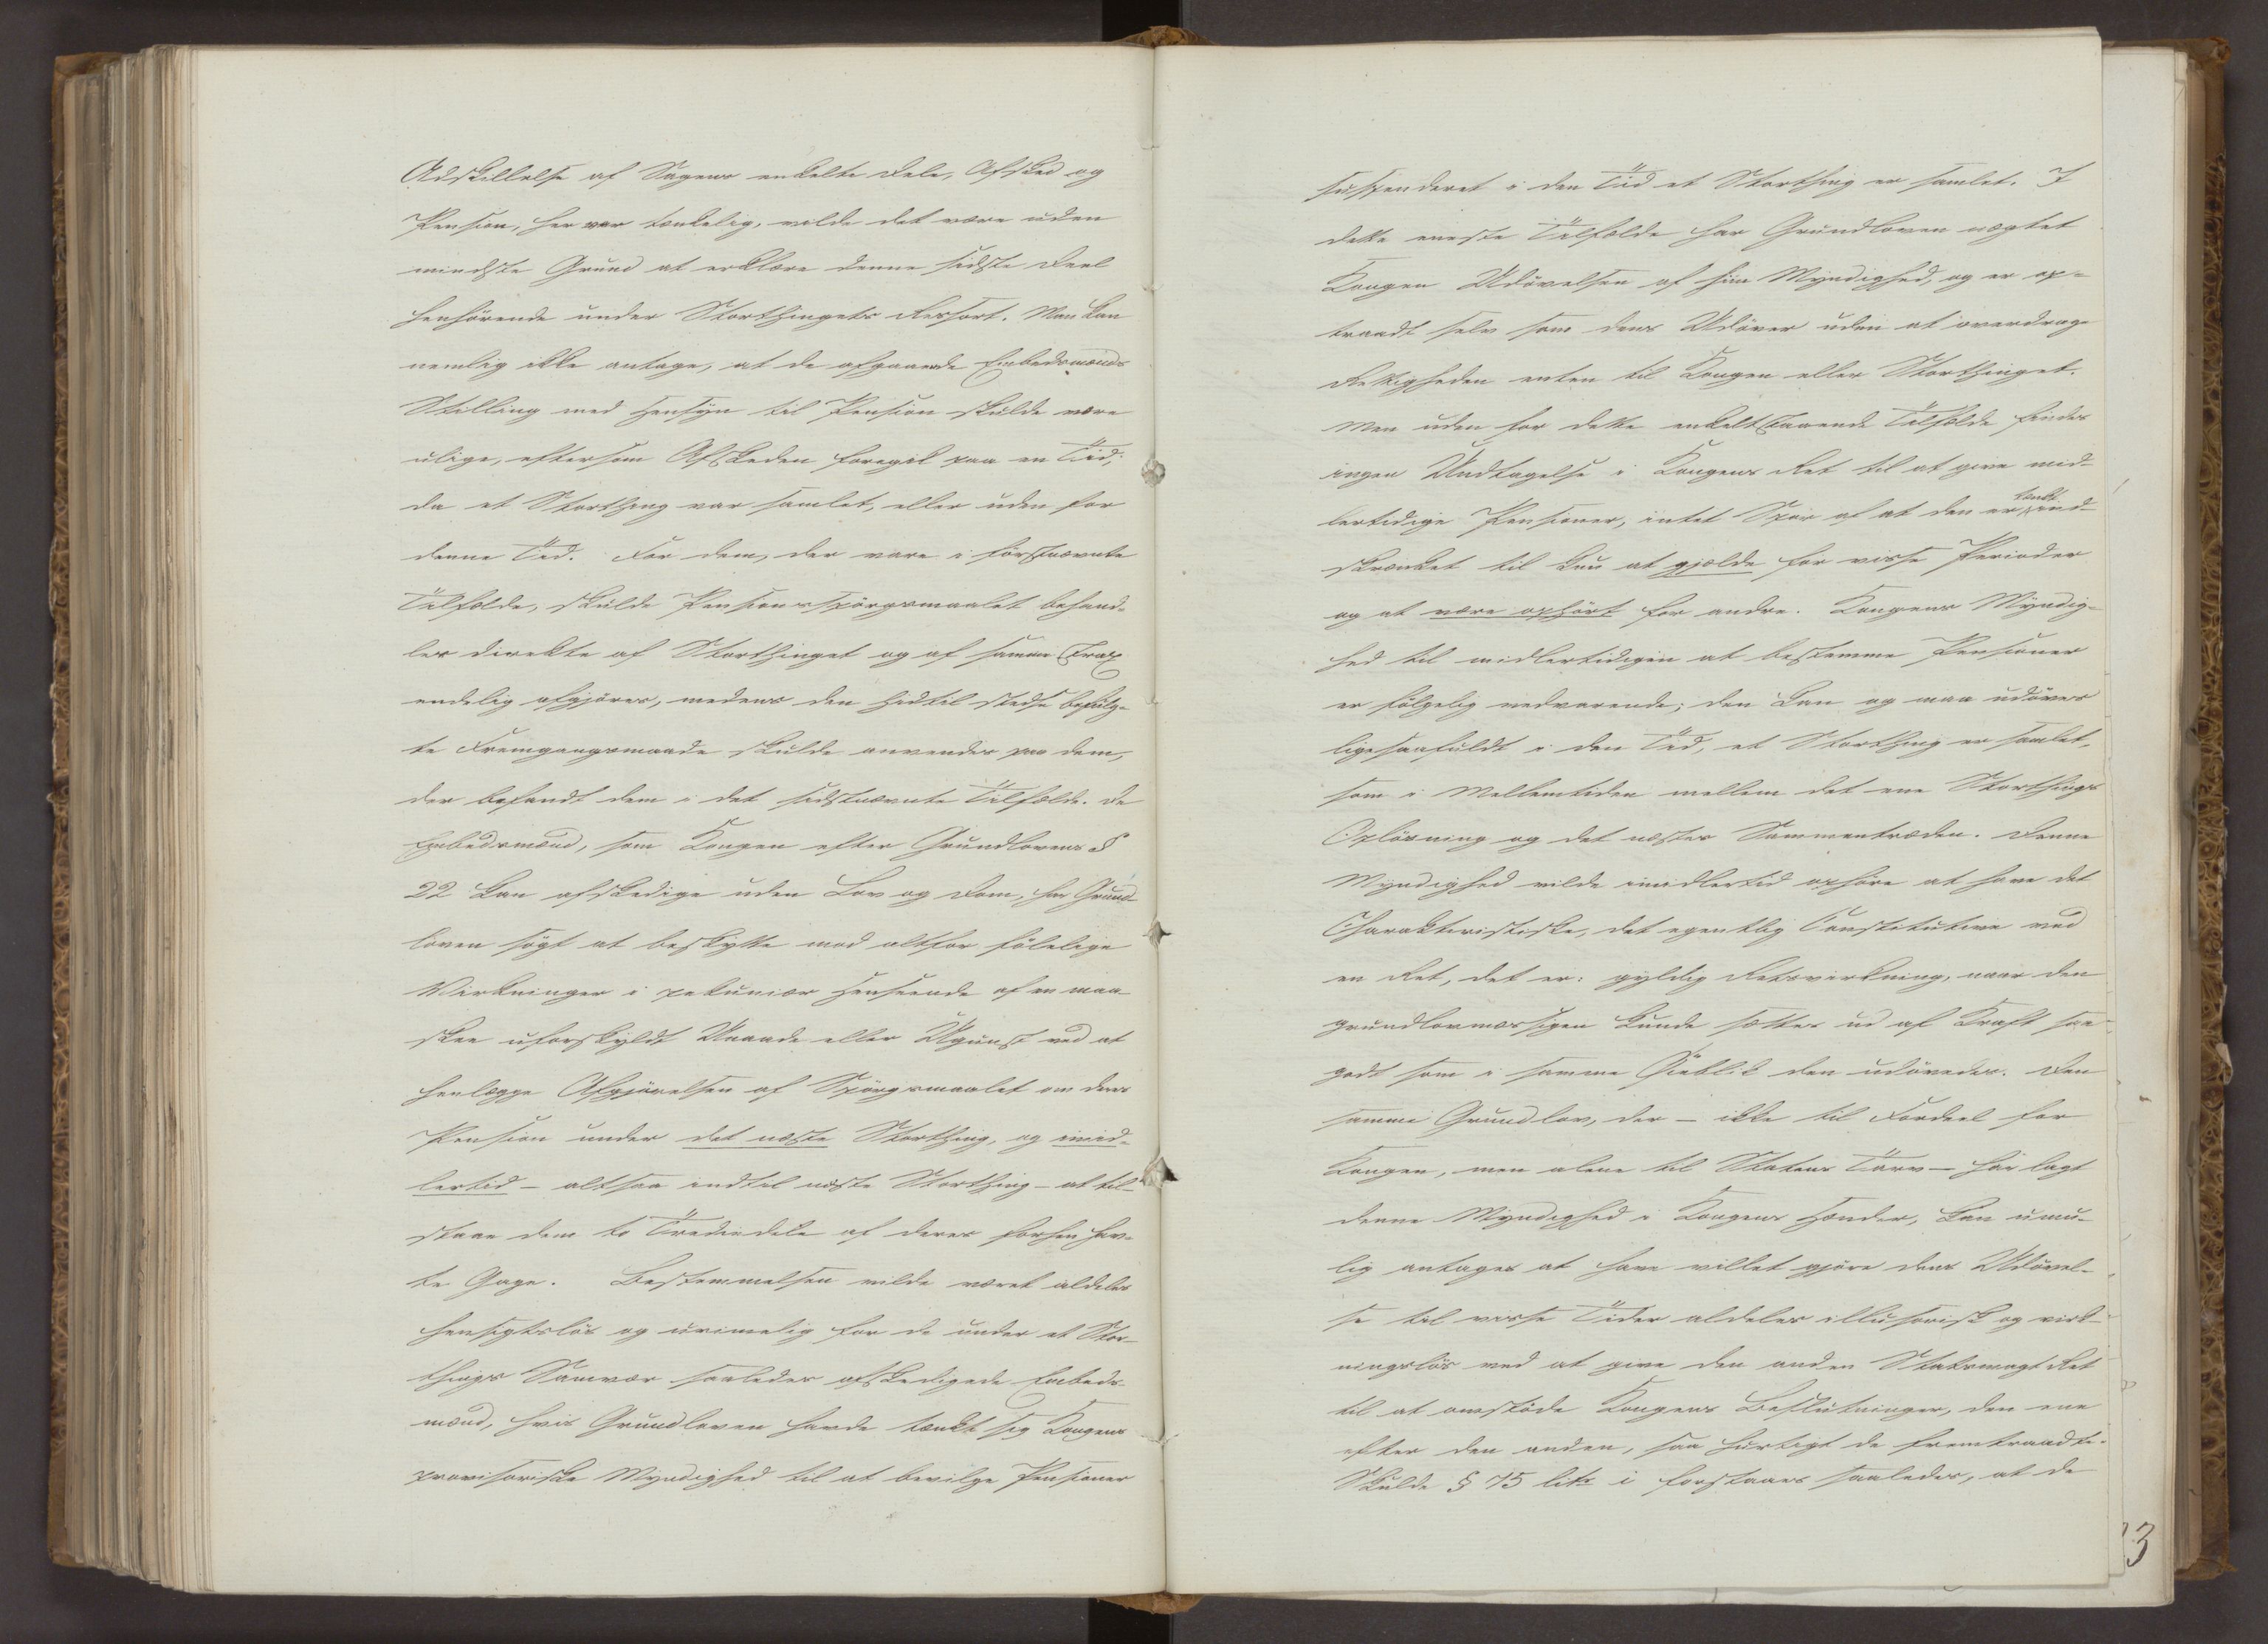 Adskillelse af Sagens enkelte Dele, Afsked og
Pension, her var tænkelig, vilde det være uden
mindste Grund at erklære denne sidste Deel
henhörende under Storthingets Ressort. Man kan
nemlig ikke antage, at de afgaaende Embedsmænds
Stilling med Hensyn til Pension skulde være
ulige, eftersom Afskeden foregik paa en Tid,
da et Storthing var samlet, eller uden for
denne Tid. For dem, der vare i förstnævnte
Tilfælde, skulde Pensionsspörgsmaalet behand-
les direkte af Storthinget og af samme strax
endelig afgjöres, medens den hidtil stedse befulg-
te Fremgangsmaade skulde anvendes paa dem,
der befandt dem i det sidstnævnte Tilfælde. De
Embedsmænd, som Kongen efter Grundlovens §
22 kan afskedige uden Lov og Dom, har Grund-
loven sögt at beskytte mod altfor fölelige
Virkninger i pekuniær Henseende af en maa-
skee uforskyldt Unaade eller Ugunst ved at
henlægge Afgjörelsen af Spörgsmaalet om deres
Pension under det næste Storthing, og imid-
lertid - altsaa indtil næste Storthing - at til-
staae dem to Trediedele af deres forhen hav-
te Gage. Bestemmelsen vilde været aldeles
hensigtslös og urimelig for de under et Stor-
things Samvær saaledes afskedigede Embeds-
mænd, hvis Grundloven havde tænkt sig Kongens
provisoriske Myndighed til at bevilge Pensioner
suspenderet i den Tid et Storthing er samlet. I
dette eneste Tilfælde har Grundloven nægtet
Kongen Udövelsen af hiin Myndighed, og er op-
traadt selv som dens Udöver uden at overdrage
Rettigheden enten til Kongen eller Storthinget.
Men uden for dette enkeltstaaende Tilfælde findes
ingen Undtagelse i Kongens Ret til at give mid-
lertidige Pensioner, intet Spor af at den er tænkt ind-
skrænket til kun at gjælde for visse Perioder
og at være ophört for andre. Kongens Myndig-
hed til midlertidigen at bestemme Pensioner
er fölgelig vedvarende; den kan og maa udöves
ligesaafuldt i den Tid, et Storthing er samlet,
som i Mellemtiden mellem det ene Storthings
Oplösning og det næstes Sammentræden. Denne
Myndighed vilde imidlertid ophöre at have det
Charakteristiske, det egentlig Constitutive ved
en Ret, det er: gyldig Retsvirkning, naar den
grundlovmæssigen kunde sættes ud af Kraft saa-
godt som i samme Öieblik den udövedes. Den
samme Grundlov, der - ikke til Fordeel for
Kongen, men alene til Statens Tarv - har lagt
denne Myndighed i Kongens Hænder, kan umu-
lig antages at have villet gjöre dens Udövel-
se til visse Tider aldeles illusorisk og virk-
ningslös ved at give den anden Statsmagt Ret
til at omstöde Kongens Beslutninger, den ene
efter den anden, saa hurtigt de fremtraadte.
Skulde § 75 litr i forstaaes saaledes, at de